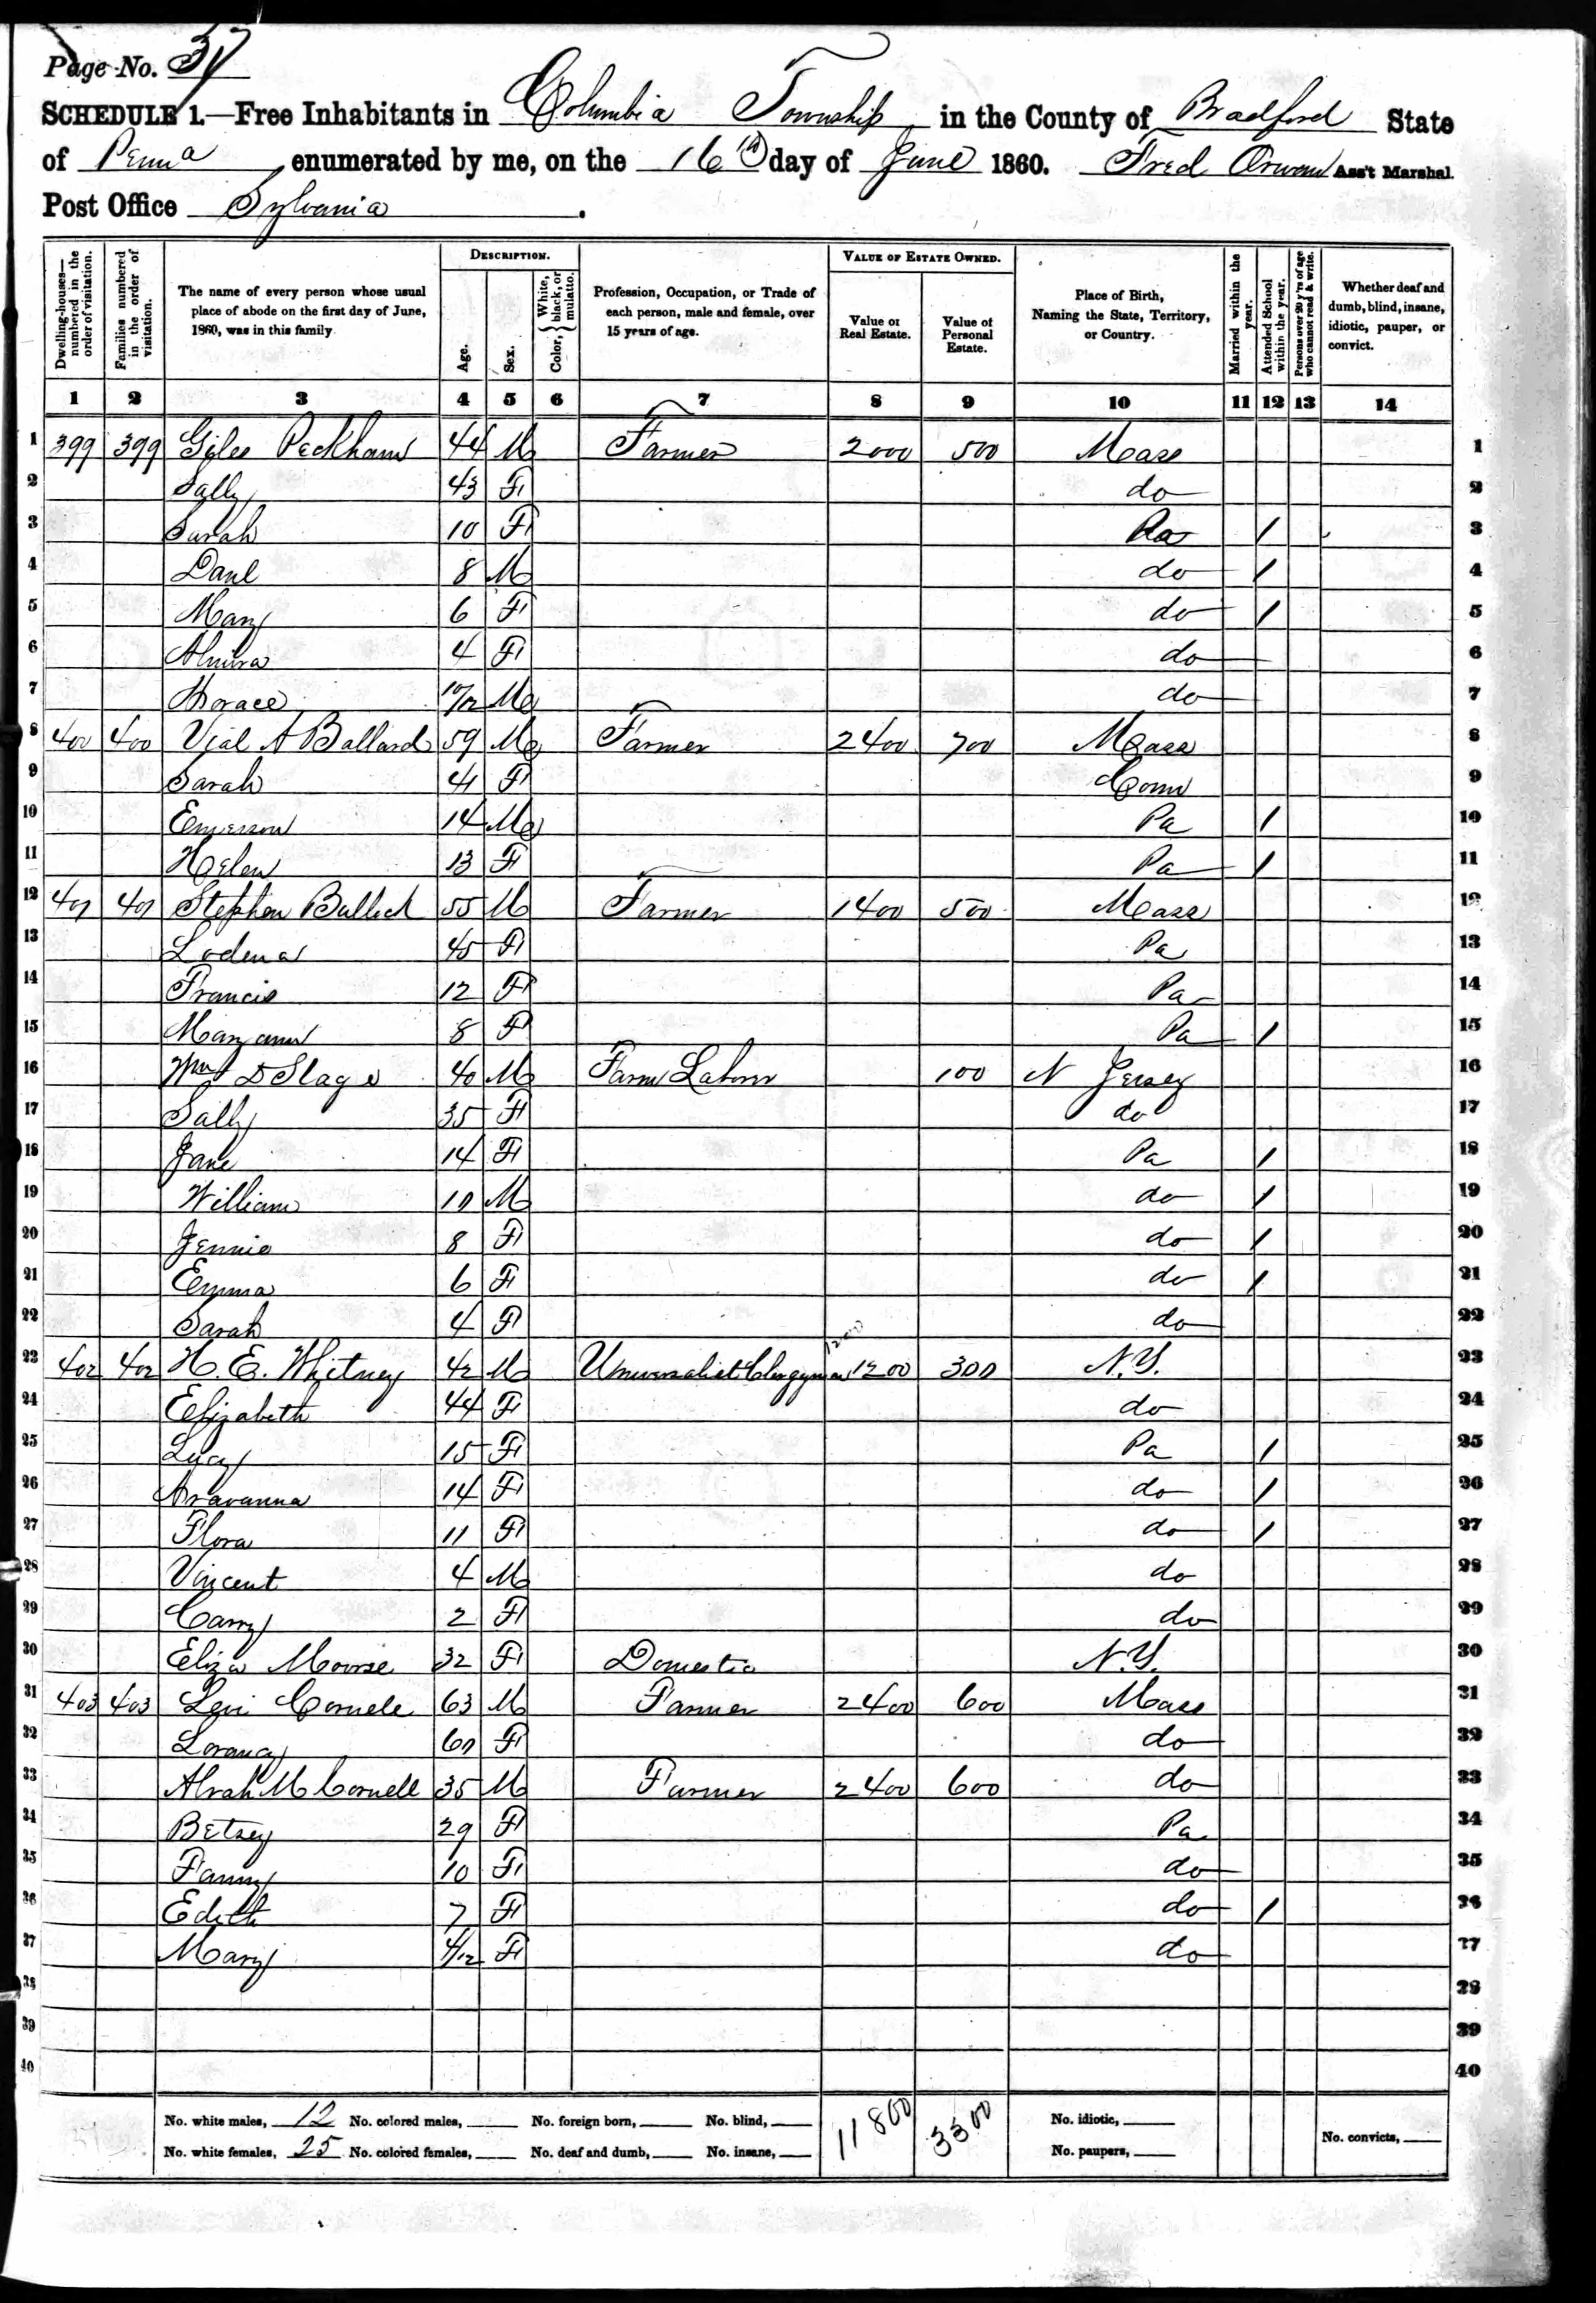 Page No. 37
SCHEDULE 1.—Free Inhabitants in Columbia Township in the County of Bradford State
of Penna enumerated by me, on the 16th day of June 1860. Fred Orwan Ass't Marshal.
Post Office Sylvania.
Dwelling-houses—numbered in the order of visitation. Families numbered in the order of visitation. The name of every person whose usual place of abode on the first day of June, 1860, was in this family. DESCRIPTION. Age. Sex. Color, { White, black, or mulatto. Profession, Occupation, or Trade of each person, male and female, over 15 years of age. VALUE OF ESTATE OWNED. Value of Real Estate. Value of Personal Estate. Place of Birth, Naming the State, Territory, or Country. Married within the year. Attended School within the year. Persons over 20 y'rs of age who cannot read & write. Whether deaf and dumb, blind, insane, idiotic, pauper, or convict.
1 2 3 4 5 6 7 8 9 10 11 12 13 14
1 399 399 Giles Peckham 44 M Farmer 2000 500 Mass 1
2 Sally 43 F do 2
3 Sarah 10 F Pa / 3
4 Danl 8 M do / 4
5 Mary 6 F do / 5
6 Almira 4 F do 6
7 Horace 10/12 M do 7
8 400 400 Vial A Ballard 59 M Farmer 2400 700 Mass 8
9 Sarah 41 F Conn 9
10 Emerson 14 M Pa / 10
11 Helen 13 F Pa / 11
12 401 401 Stephen Bullock 55 M Farmer 1400 500 Mass 12
13 Lodena 45 F Pa 13
14 Francis 12 F Pa 14
15 Maryann 8 F Pa / 15
16 Wm D Slage 40 M Farm Labour 100 N Jersey 16
17 Sally 35 F do 17
18 Jane 14 F Pa / 18
19 William 10 M do / 19
20 Jennie 8 F do / 20
21 Emma 6 F do / 21
22 Sarah 4 F do 22
23 402 402 H. E. Whitney 42 M Universalist Clergyman 1200 1200 300 N.Y. 23
24 Elizabeth 44 F do 24
25 Lucy 15 F Pa / 25
26 Aravanna 14 F do / 26
27 Flora 11 F do / 27
28 Vincent 4 M do 28
29 Carry 2 F do 29
30 Eliza Moorse 32 F Domestic N.Y. 30
31 403 403 Levi Cornele 63 M Farmer 2400 600 Mass 31
32 Lorancy 60 F do 32
33 Alvah M Cornell 35 M Farmer 2400 600 do 33
34 Betsey 29 F Pa 34
35 Fanny 10 F do 35
36 Edith 7 F do / 36
37 Mary 4/12 F do 37
38 38
39 39
40 40
No. white males, 12 No. colored males, No. foreign born, No. blind, 11800 3300 No. idiotic,
No. white females, 25 No. colored females, No. deaf and dumb, No. insane, No. paupers, No. convicts,